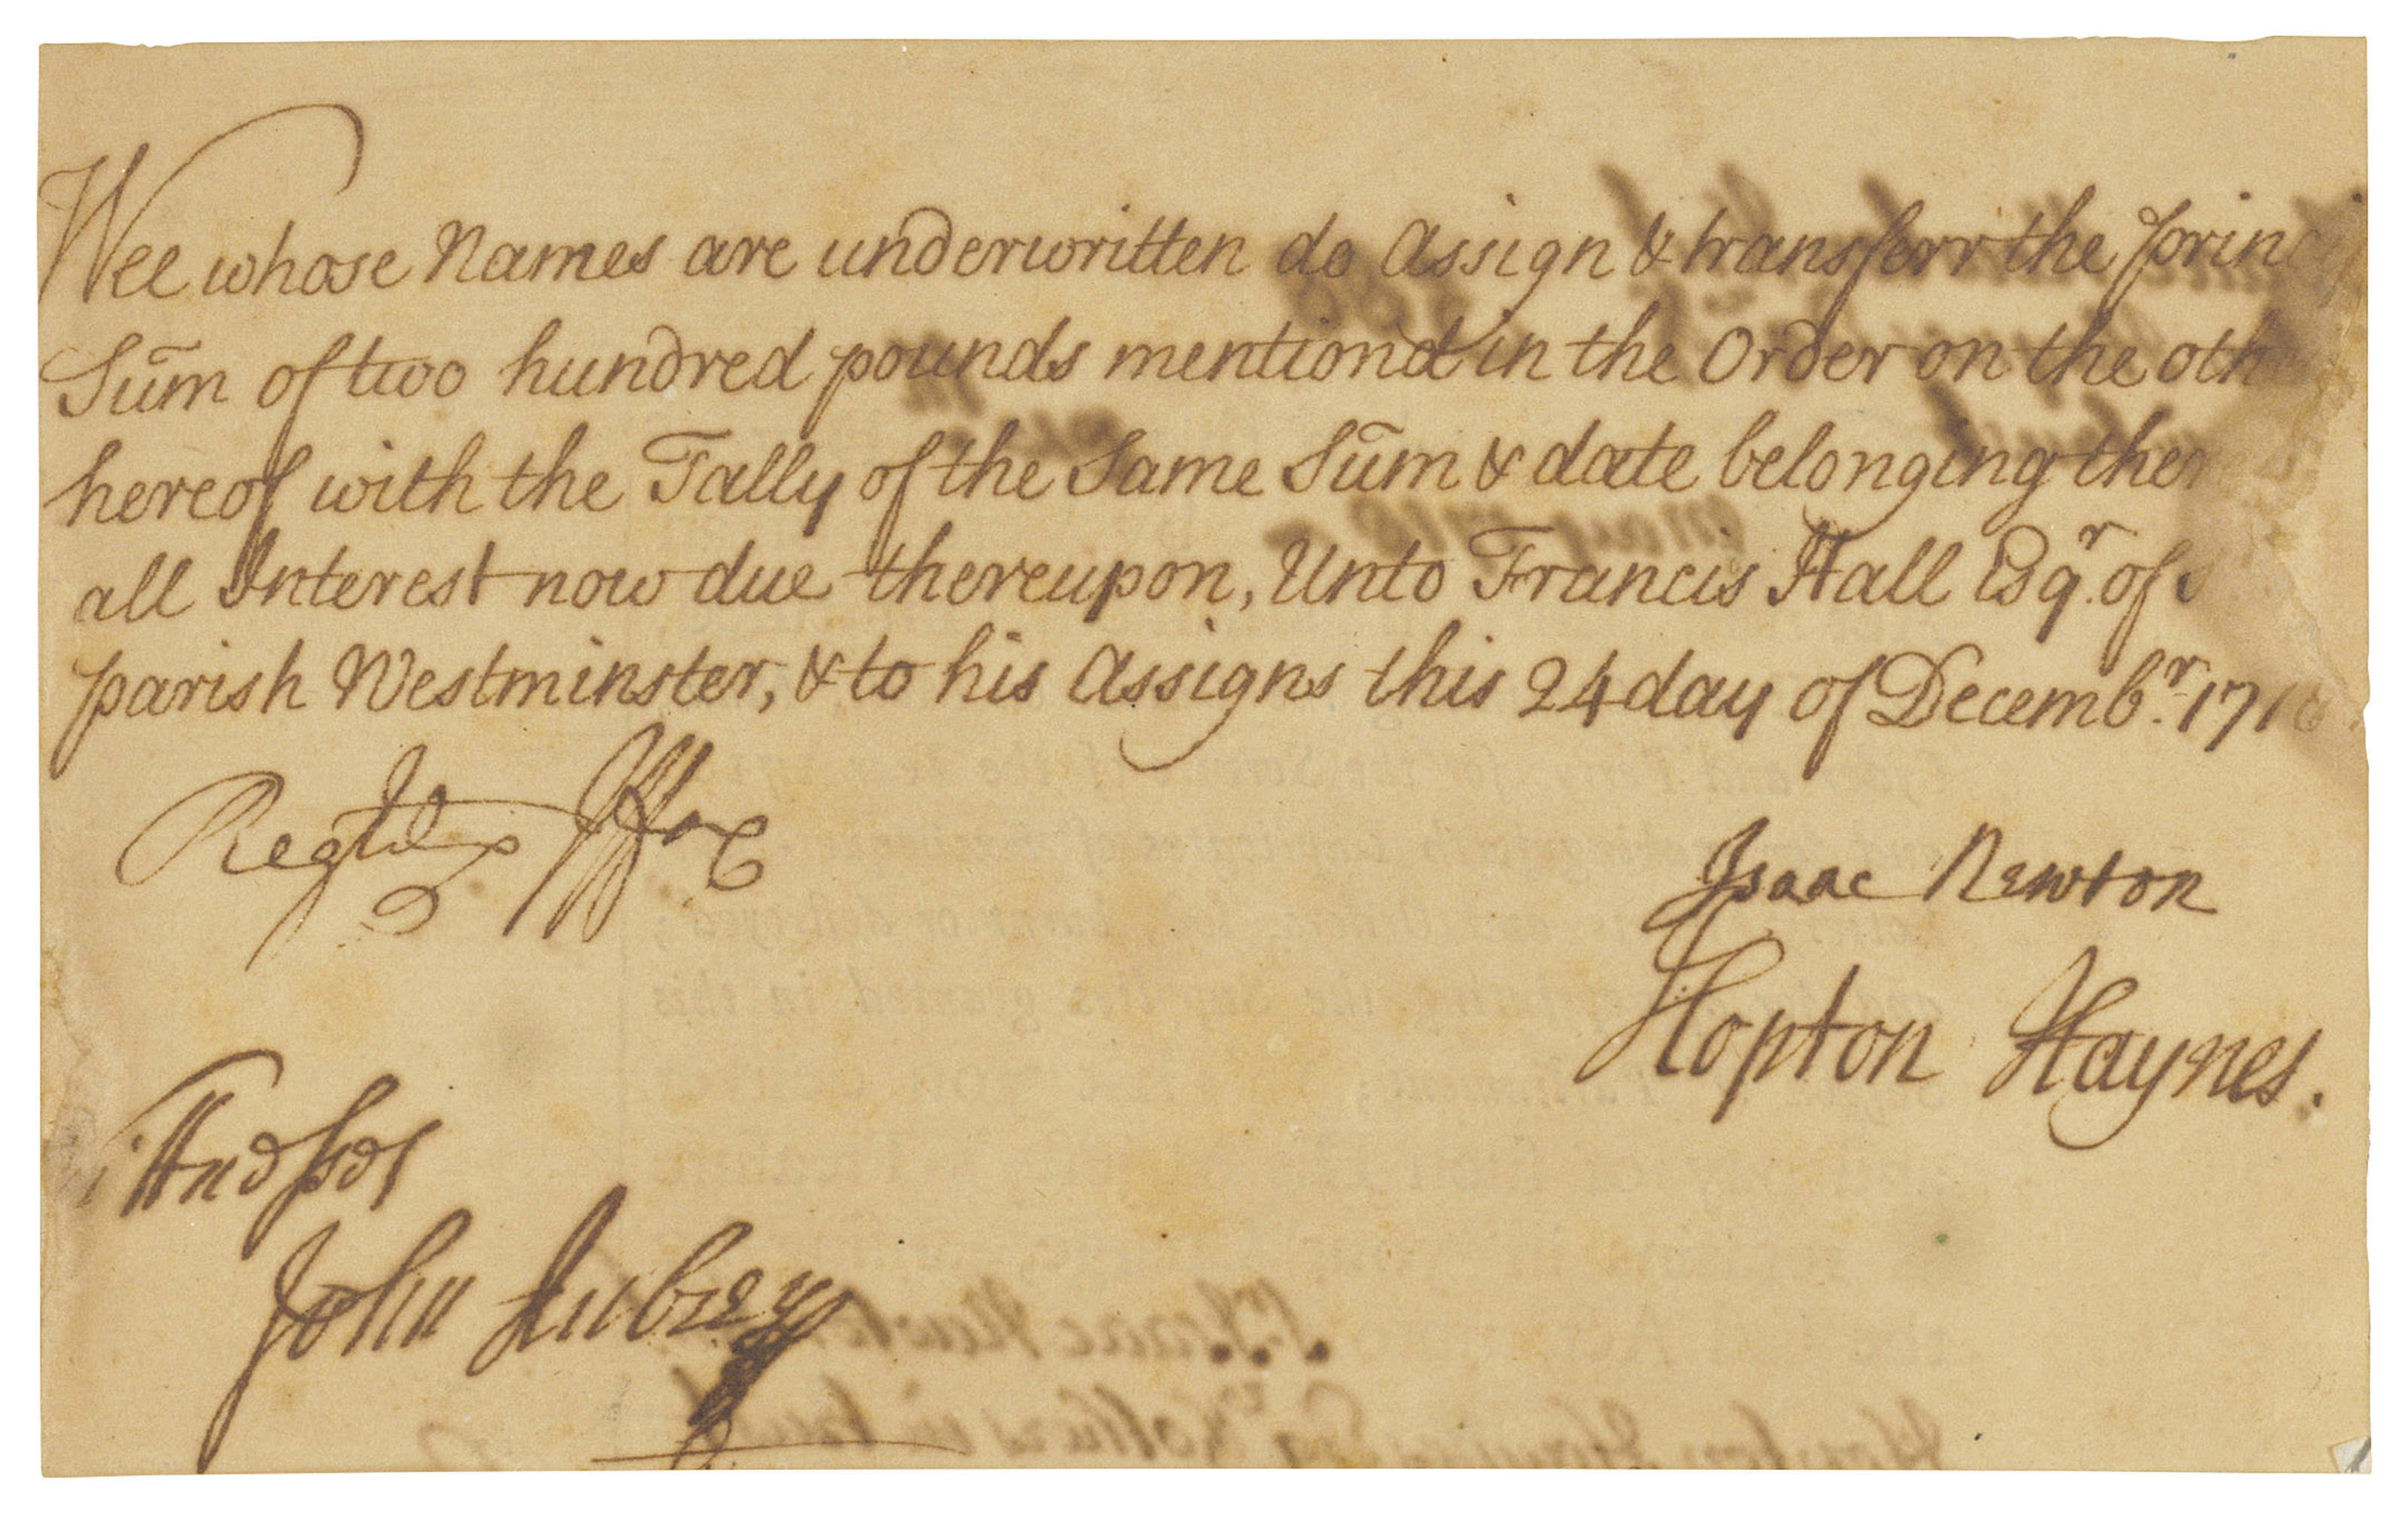 Wee whose Names are underwritten do Assign & transferr the princi
Sum̄ of two hundred pounds mentiond in the Order on the oth
hereof with the Tally of the Same Sum̄ & date belonging ther
all Interest now due thereupon, Unto Francis Hall Esqr. of
parish Westminster, & to his Assigns this 24 day of Decembr. 171
Isaac Newton
Hopton Haynes.
John Aubrey